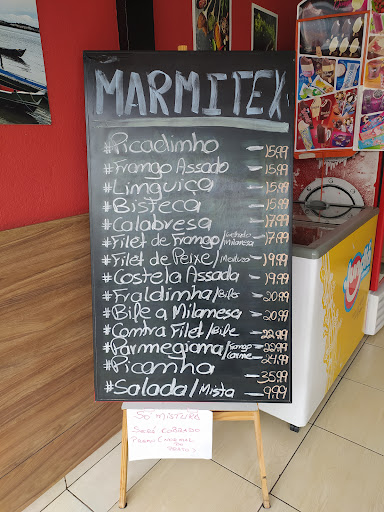 MARMITEX
#Picadinho - 15,99
#Frango Assado - 15,99
#Linguiça - 15,99
#Bisteca - 15,99
#Calabresa - 17,99
#Filet de Frango/Grelhado Milanesa - 17,99
#Filet de Peixe/Merluza - 19,99
#Costela Assada - 19,99
#Fraldinha/Bife - 20,99
#Bife a Milanesa - 20,99
#Contra Filet/Bife - 22,99
#Parmegiana/Frango - 22,99
carne - 24,99
#Picanha - 35,99
#Salada/Mista - 9,99
SÓ MISTURA
SERÁ COBRADO